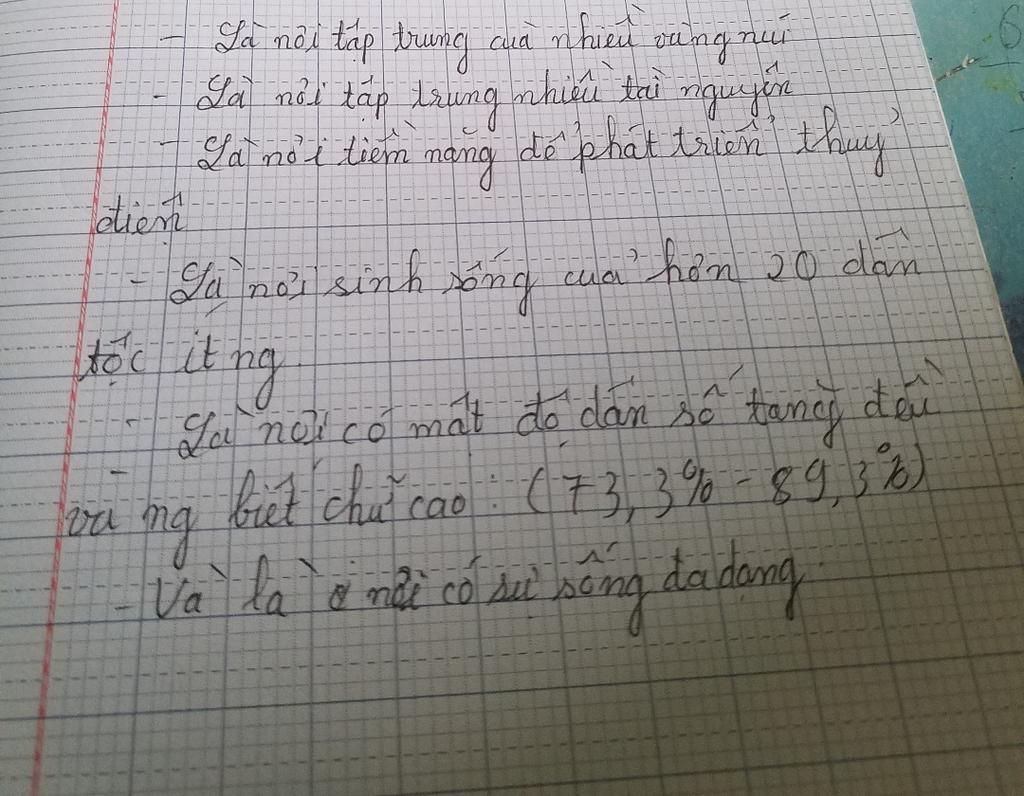 - Là nơi tập trung của nhiều vùng núi
- Là nơi tập trung nhiều tài nguyên
- Là nơi tiềm năng để phát triển thuỷ
điện
- Là nơi sinh sống của hơn 20 dân
tộc ít ng
- Là nơi có mật độ dân số tăng đều
và ng biết chữ cao : (73,3% - 89,3%)
- Và là ở nơi có sự sống đa dạng